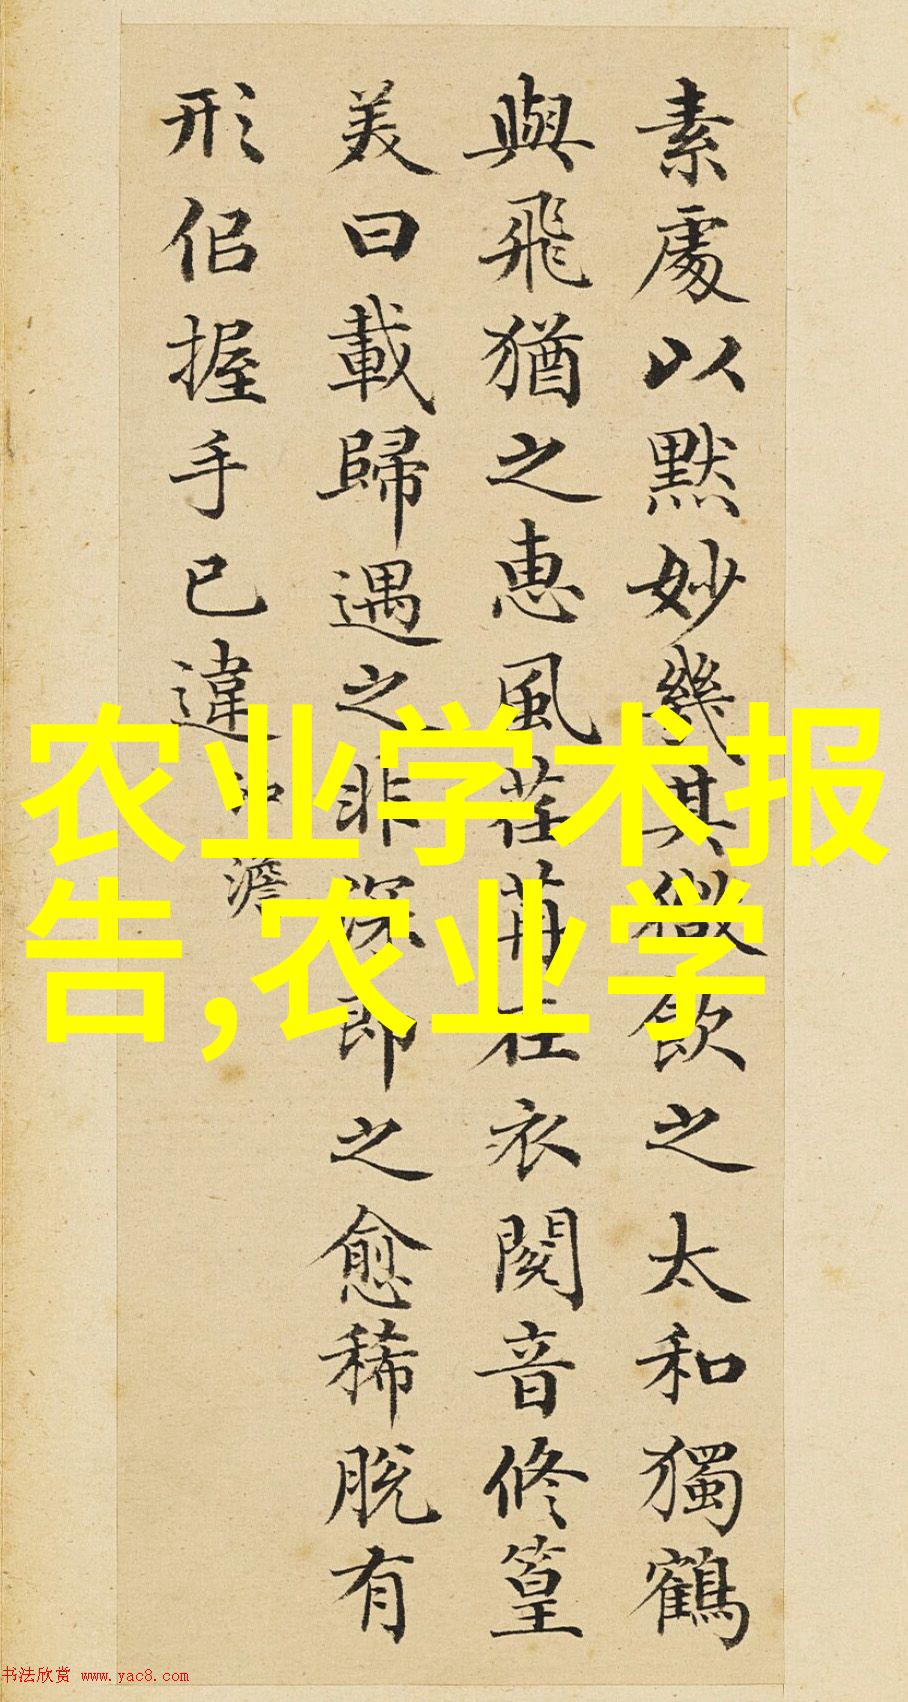 素處以默妙幾其微飲之太和獨鶴
與飛猶之惠風荏苒在衣閱音修篁
美曰載歸遇之匪深即之愈稀脫有
形佀握手已違
沖澹
农业学术报
告,农业学
书法欣赏 www.yac8.com